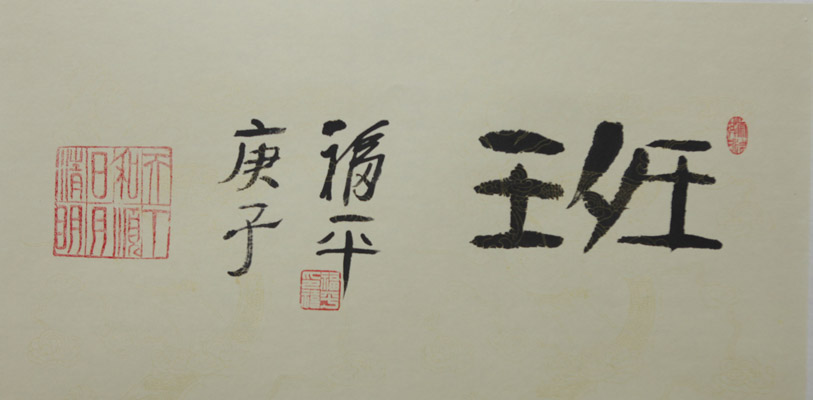 班
福平
庚子
天下
和順
日月
清明